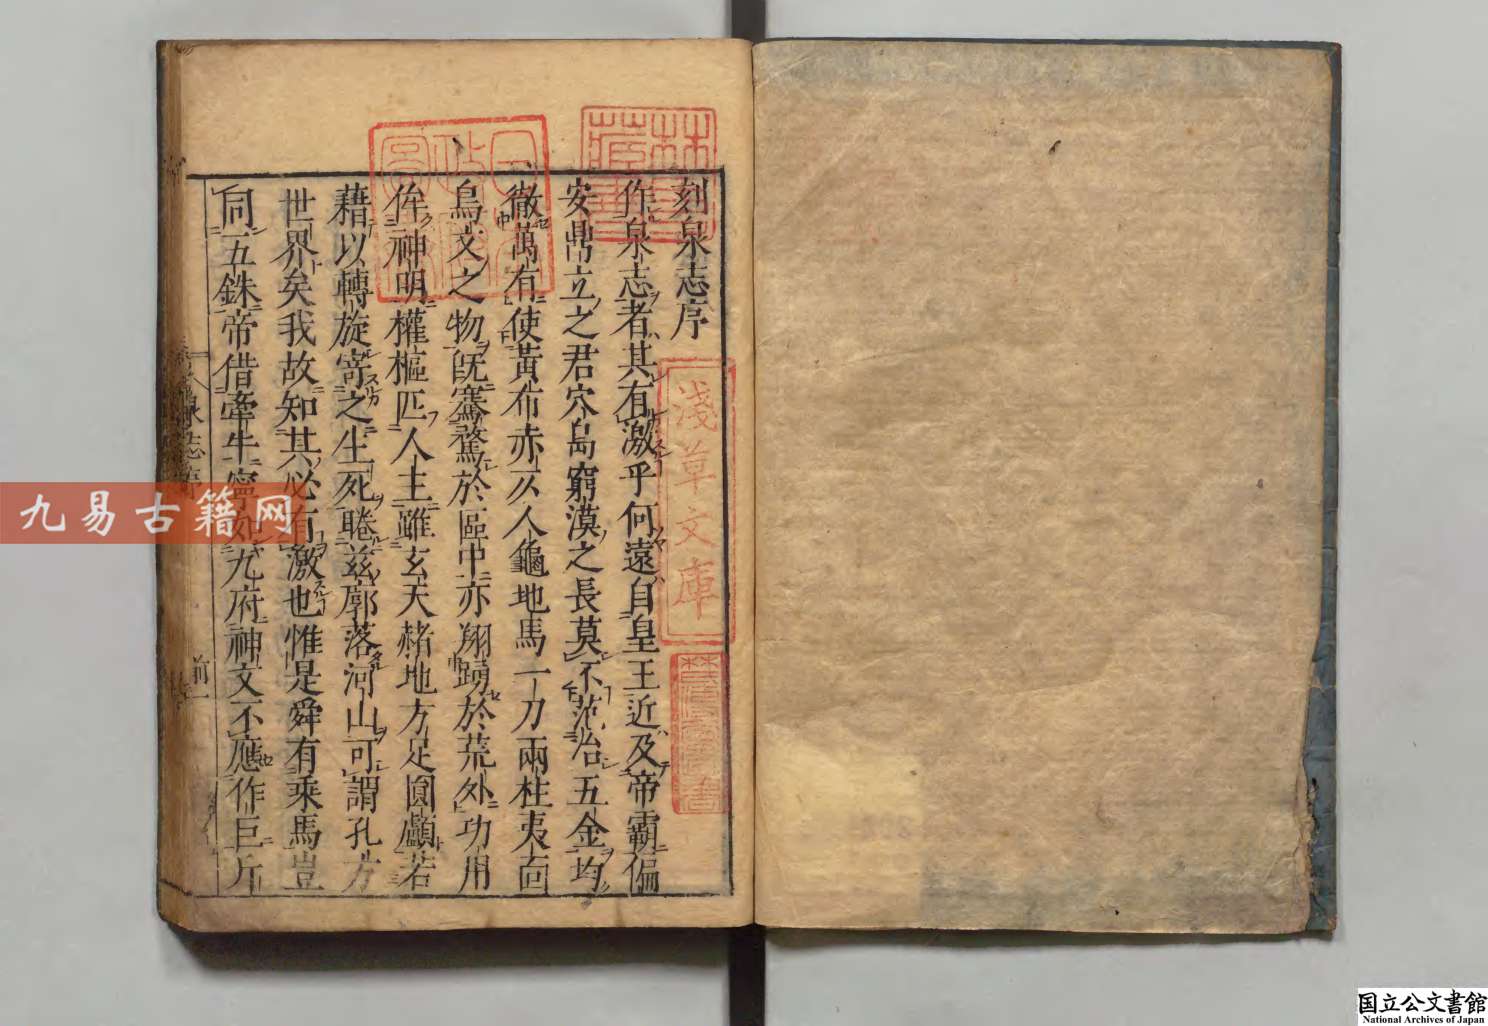 刻泉志序
作泉志者其有激乎何遠自皇王近及帝霸偏
安鼎立之君穴島窮漠之長莫不范冶五金均
徹萬有使黃布赤仄人龜地馬一刀兩柱夷面
烏文之物既騫騖於區中亦翔踴於荒外功用
侔神明權樞匹人主雖玄天赭地方足圓顱若
藉以轉旋寄之生死睠茲廓落河山可謂孔方
世界矣我故知其必有激也惟是舜有乘馬豈
同五銖帝借牽牛寧如九府神文不應作巨斤
泉志序
前一
林氏藏書
日本政府圖書
淺草文庫
九易古籍网
国立公文書館
National Archives of Japan